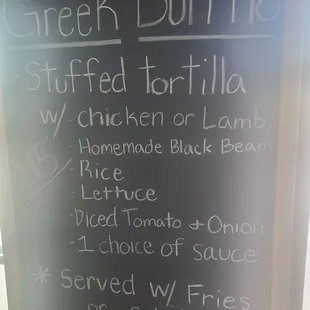 Greek Burrito
-Stuffed tortilla
w/- chicken or Lamb
- Homemade Black Bean
- Rice
- Lettuce
-Diced Tomato + Onion
-1 choice of sauce
* Served w/ Fries
or